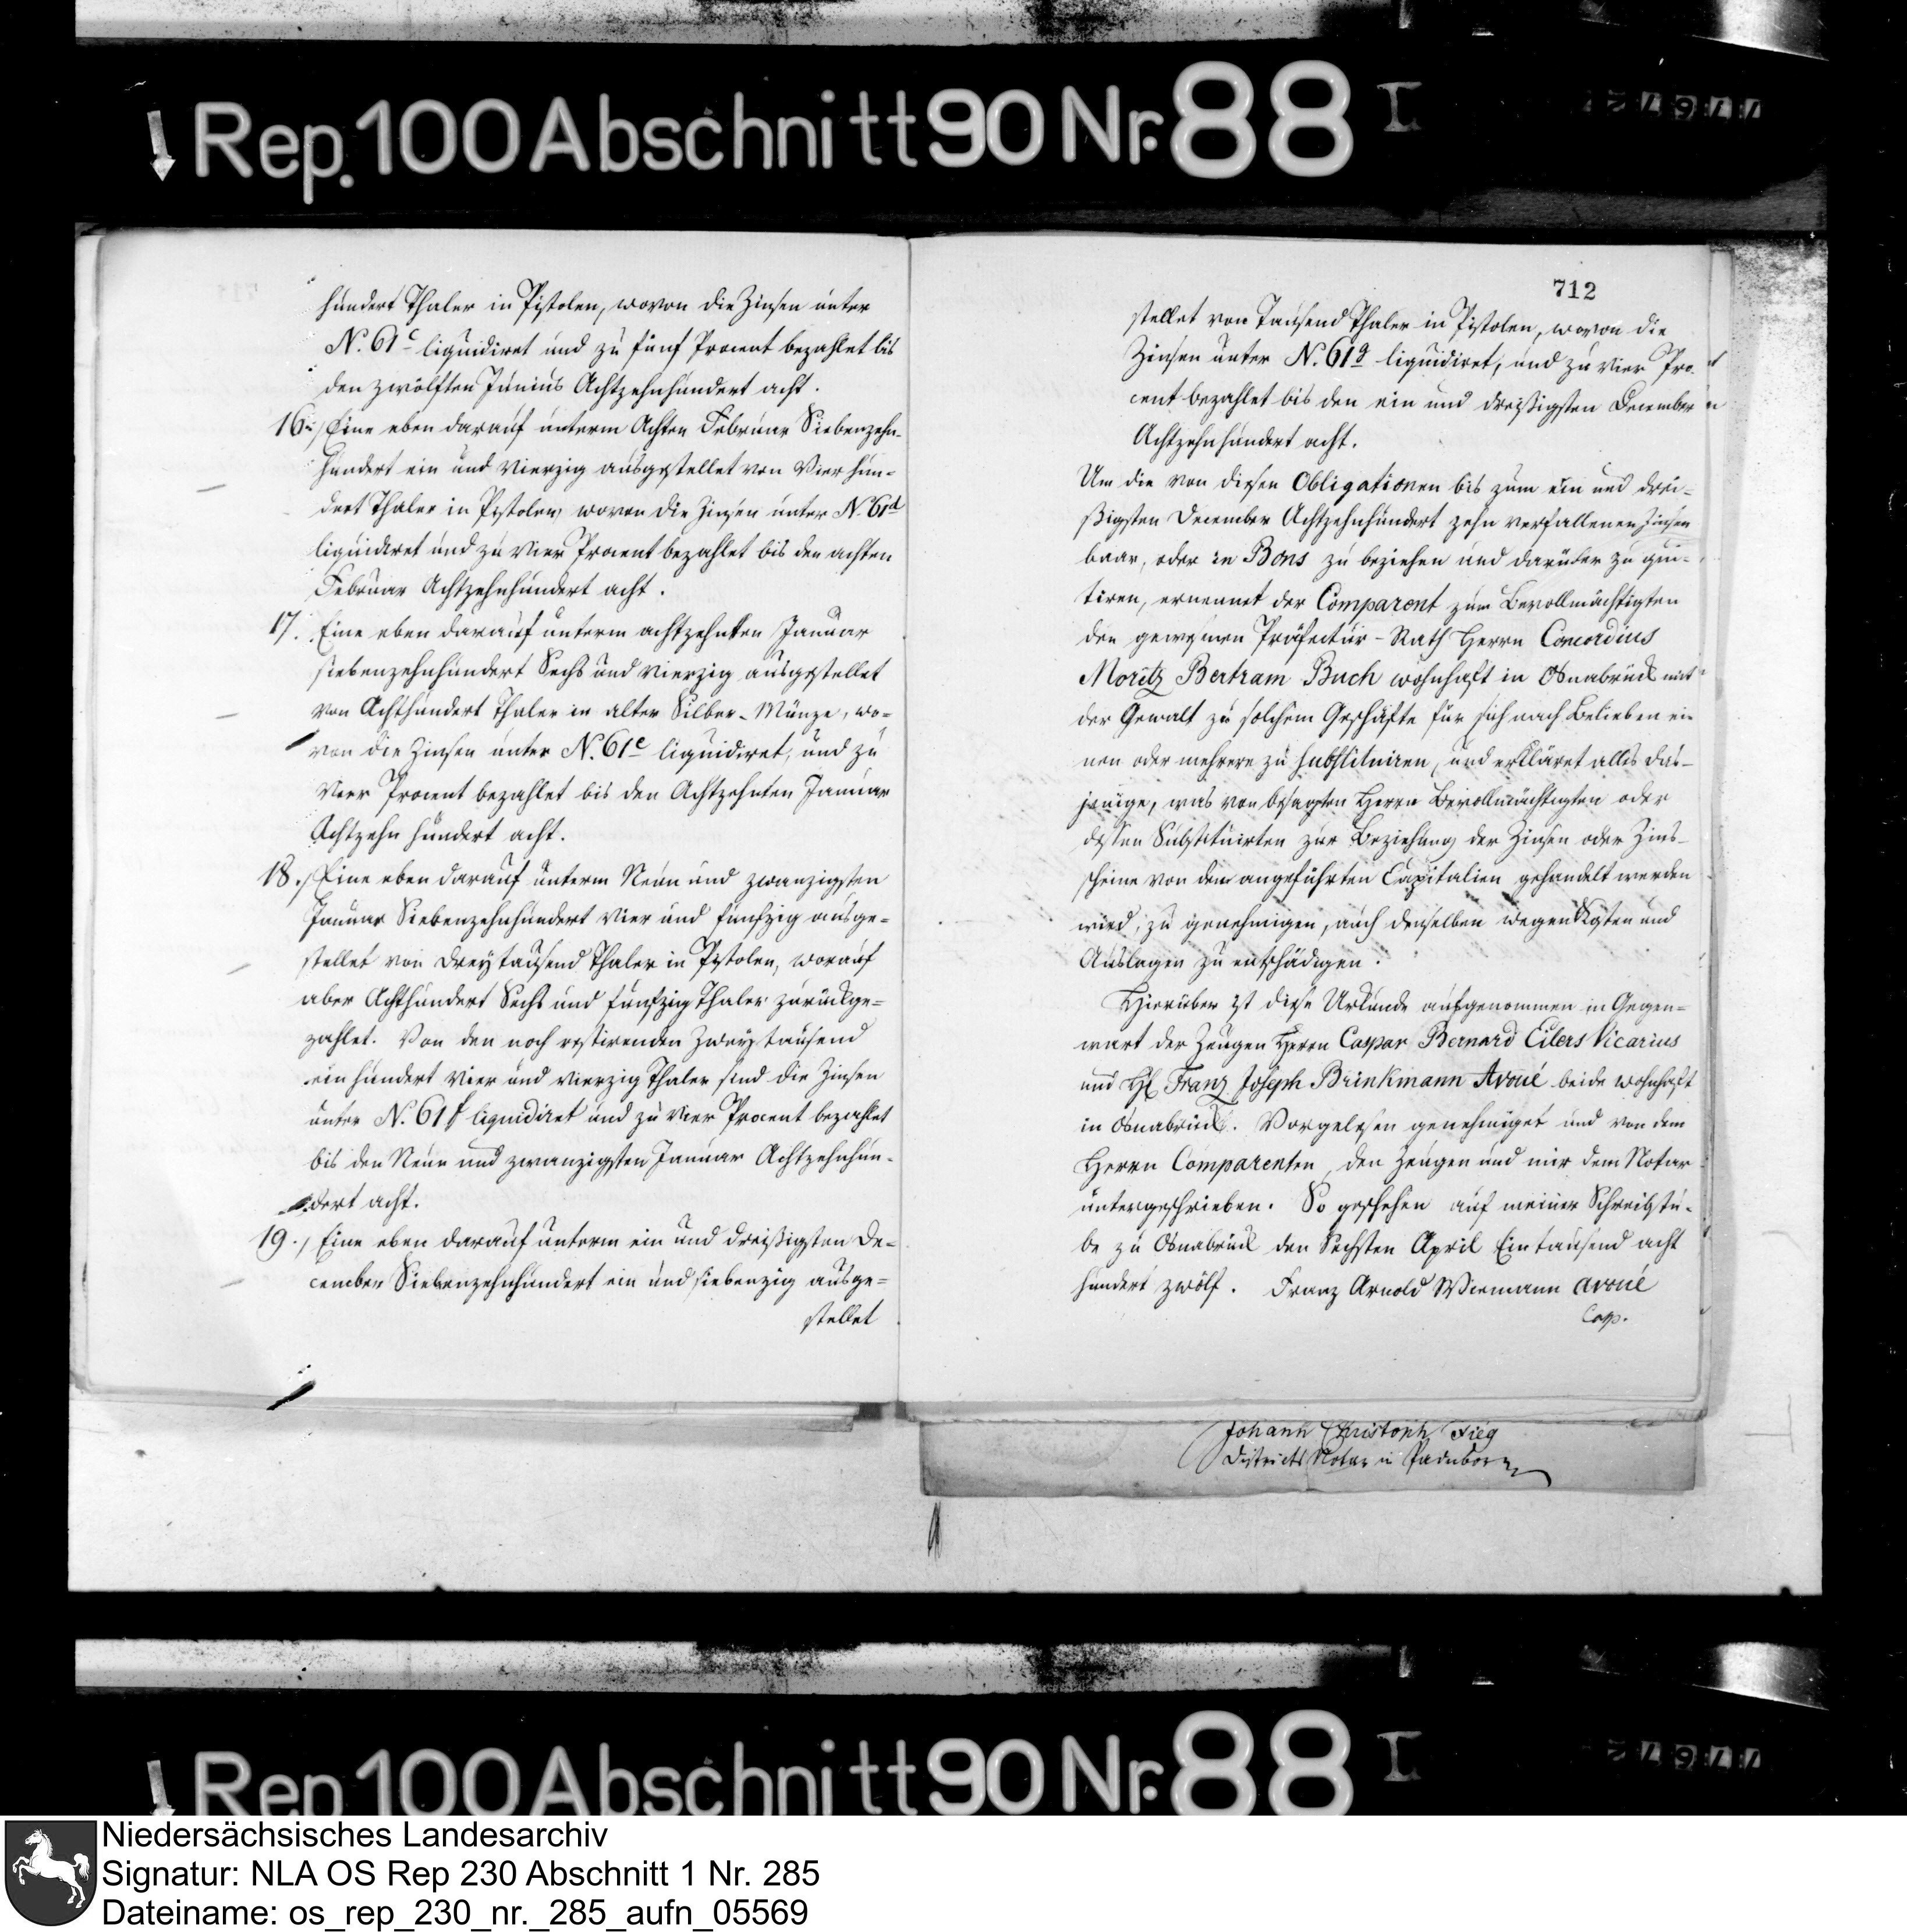 Rep. 100 Abschnitt 90 Nr. 88 I
hundert Thaler in Pistolen, wovon die Zinsen unter
N. 61c liquidiret und zu fünf Procent bezahlet bis
den zwölften Junius Achtzehnhundert acht.
16. Eine eben darauf unterm Achten Februar Siebenzehn-
hundert ein und Vierzig ausgestellet von Vier hun-
dert Thaler in Pistolen, wovon die Zinsen unter N. 61d
liquidiret und zu Vier Procent bezahlet bis den achten
Februar Achtzehnhundert acht.
17. Eine eben darauf unterm achtzehnten Januar
siebenzehnhundert Sechs und Vierzig ausgestellet
von Achthundert Thaler in alter Silber-Münze, wo-
von die Zinsen unter N. 61e liquidiret, und zu
Vier Procent bezahlet bis den Achtzehnten Januar
Achtzehn hundert acht.
18. Eine eben darauf unterm Neun und zwanzigsten
Januar Siebenzehnhundert Vier und fünfzig ausge-
stellet von Dreytausend Thaler in Pistolen, worauf
aber Achthundert Sechs und fünfzig Thaler zurückge-
zahlet. Von den noch restirenden Zweytausend
einhundert Vier und Vierzig Thaler sind die Zinsen
unter N. 61f liquidiret und zu Vier Procent bezahlet
bis den Neun und zwanzigsten Januar Achtzehnhun-
dert acht.
19. Eine eben darauf unterm ein und dreißigsten De-
cember Siebenzehnhundert ein und siebenzig ausge-
stellet
712
stellet von Tausend Thaler in Pistolen, wovon die
Zinsen unter N. 61g liquidiret, und zu Vier Pro-
cent bezahlet bis den ein und dreißigsten December
Achtzehnhundert acht.
Um die von diesen Obligationen bis zum ein und drei-
ßigsten December Achtzehnhundert zehn verfallenen Zinsen
baar, oder in Bons zu beziehen und darüber zu qui-
tiren, ernennet der Comparent zum Bevollmächtigten
den gewesenen Präfectur-Rath Herrn Concordius
Moritz Bertram Buch wohnhaft in Osnabrück mit
der Gewalt zu solchem Geschäfte für sich nach Belieben ei-
nen oder mehrere zu substituiren, und erkläret alles das-
jenige, was von besagten Herrn Bevollmächtigten oder
dessen Substituirten zur Beziehung der Zinsen oder Zins-
scheine von dem angeführten Capitalien gehandelt werden
wird, zu genehmigen, auch denselben wegen Kosten und
Auslagen zu entschädigen.
Hierüber ist diese Urkunde aufgenommen in Gegen-
wart der Zeugen Herrn Caspar Bernard Eilers Vicarius
und H. Franz Joseph Brinkmann Avoué beide wohnhaft
in Osnabrück. Vorgelesen genehmiget und von dem
Herrn Comparenten, den Zeugen und mir dem Notar
untergeschrieben. So geschehen auf meiner Schreibstu-
be zu Osnabrück den Sechsten April Ein tausend acht
hundert zwölf. Franz Arnold Wiemann Avoué
Cap.
Johann Christoph
Districts Notar in Paderborn
Rep 100 Abschnitt 90 Nr. 88 I
Niedersächsisches Landesarchiv
Signatur: NLA OS Rep 230 Abschnitt 1 Nr. 285
Dateiname: os_rep_230_nr._285_aufn_05569